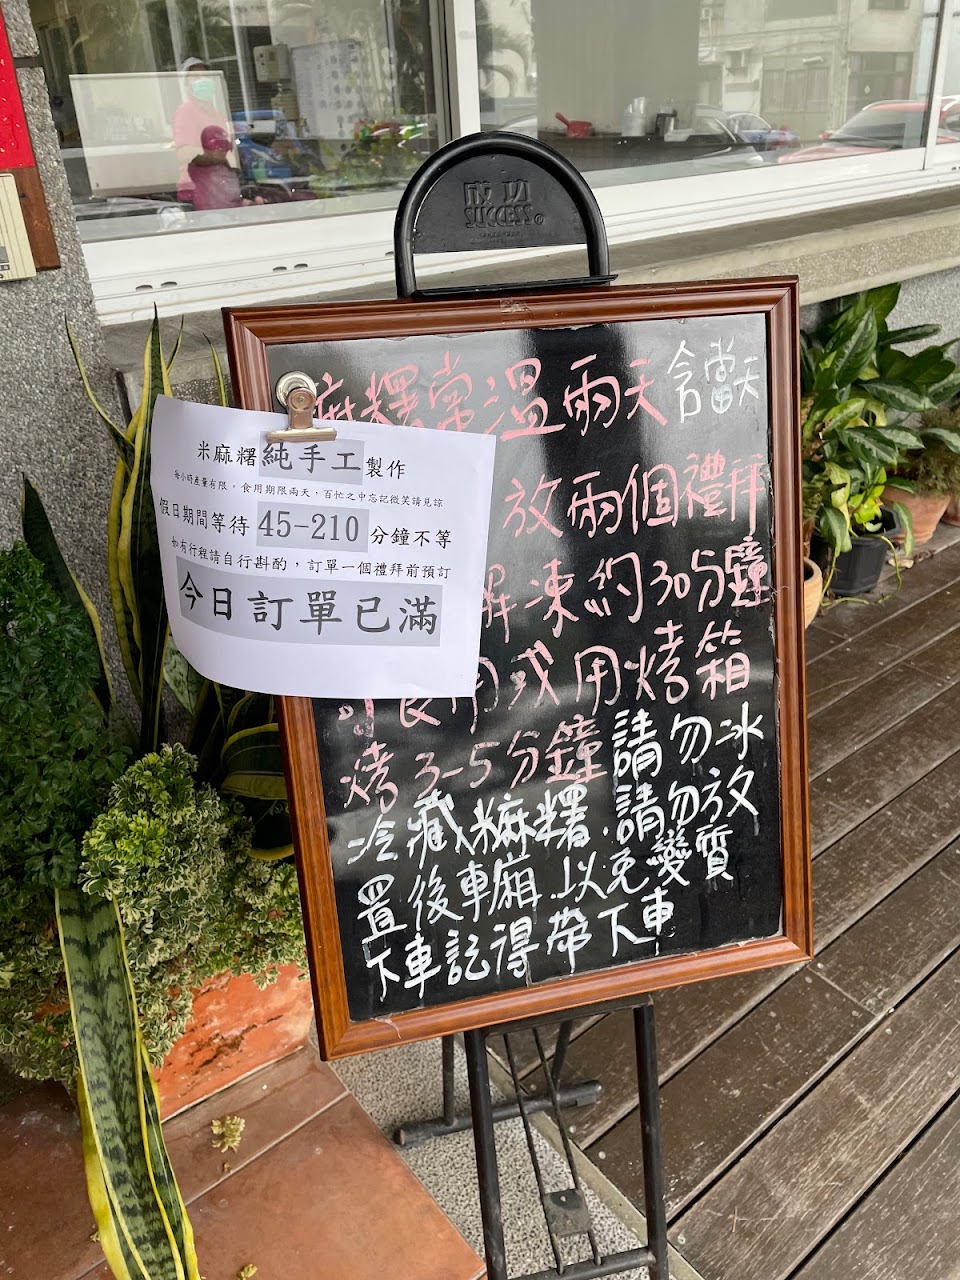 成功
SUCCESS®
麻糬常溫兩天含當天
放兩個禮拜
解凍約30分鐘
可食用或用烤箱
烤3-5分鐘請勿冰
冷藏米麻糬.請勿放
置後車廂.以免變質
下車記得帶下車
米麻糬純手工製作
每小時產量有限，食用期限兩天，百忙之中忘記微笑請見諒
假日期間等待45-210分鐘不等
如有行程請自行斟酌，訂單一個禮拜前預訂
今日訂單已滿